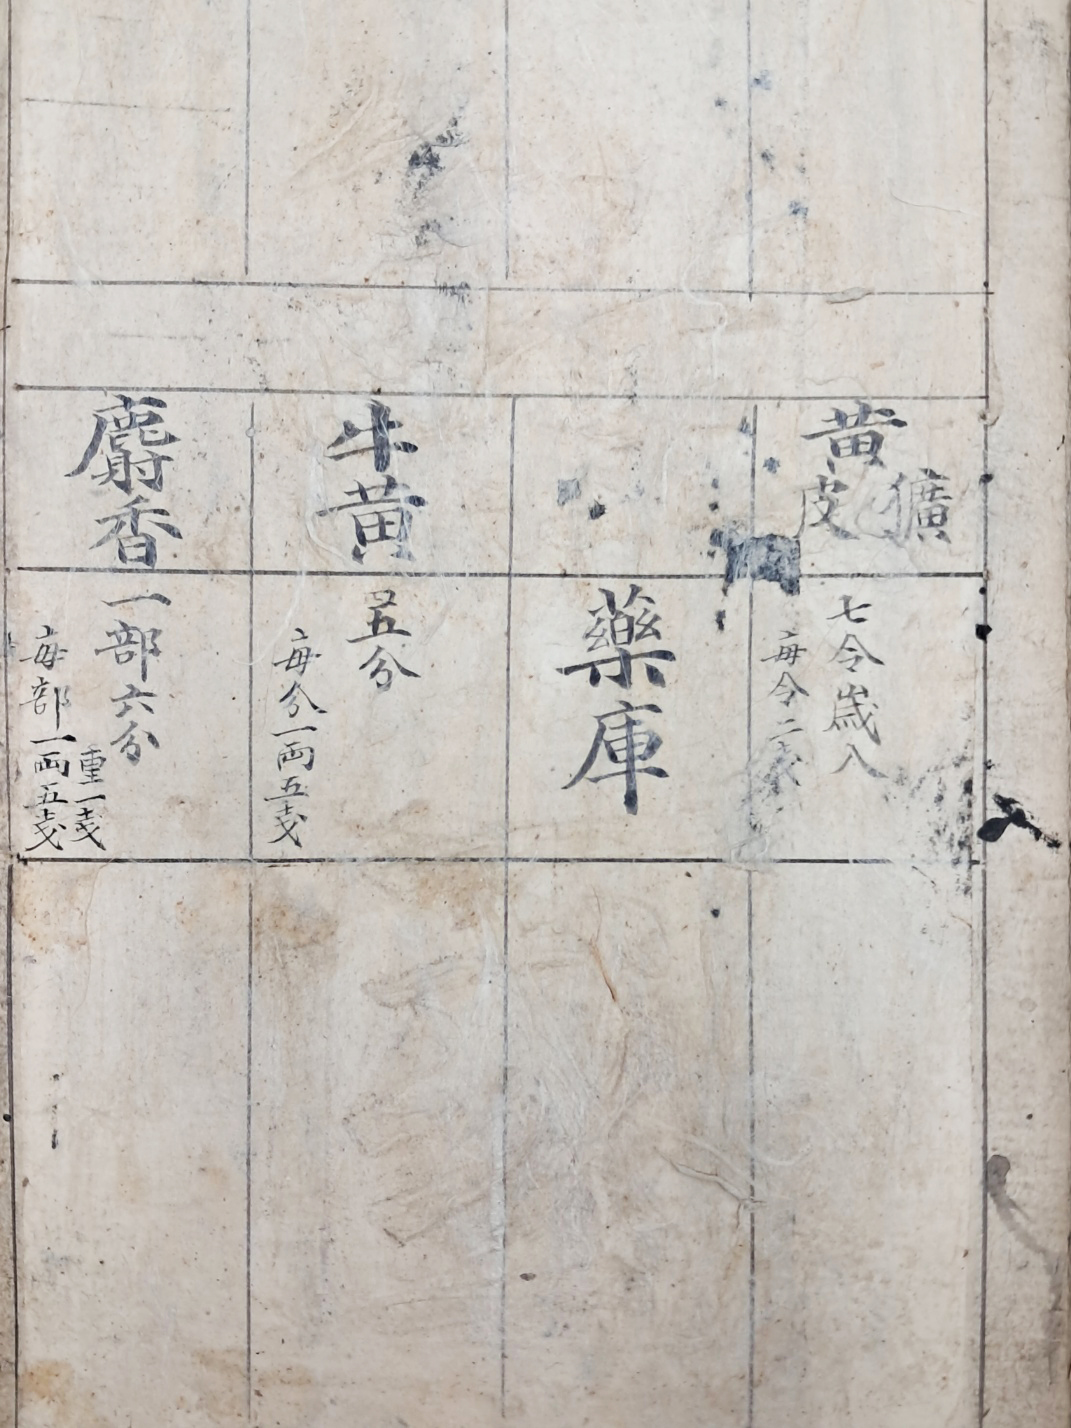 黄
獷皮
七令歲入
每令二戔
藥庫
牛黄
五分
每分一両五戔
麝香
一部六分
重一戔
每部一両五戔